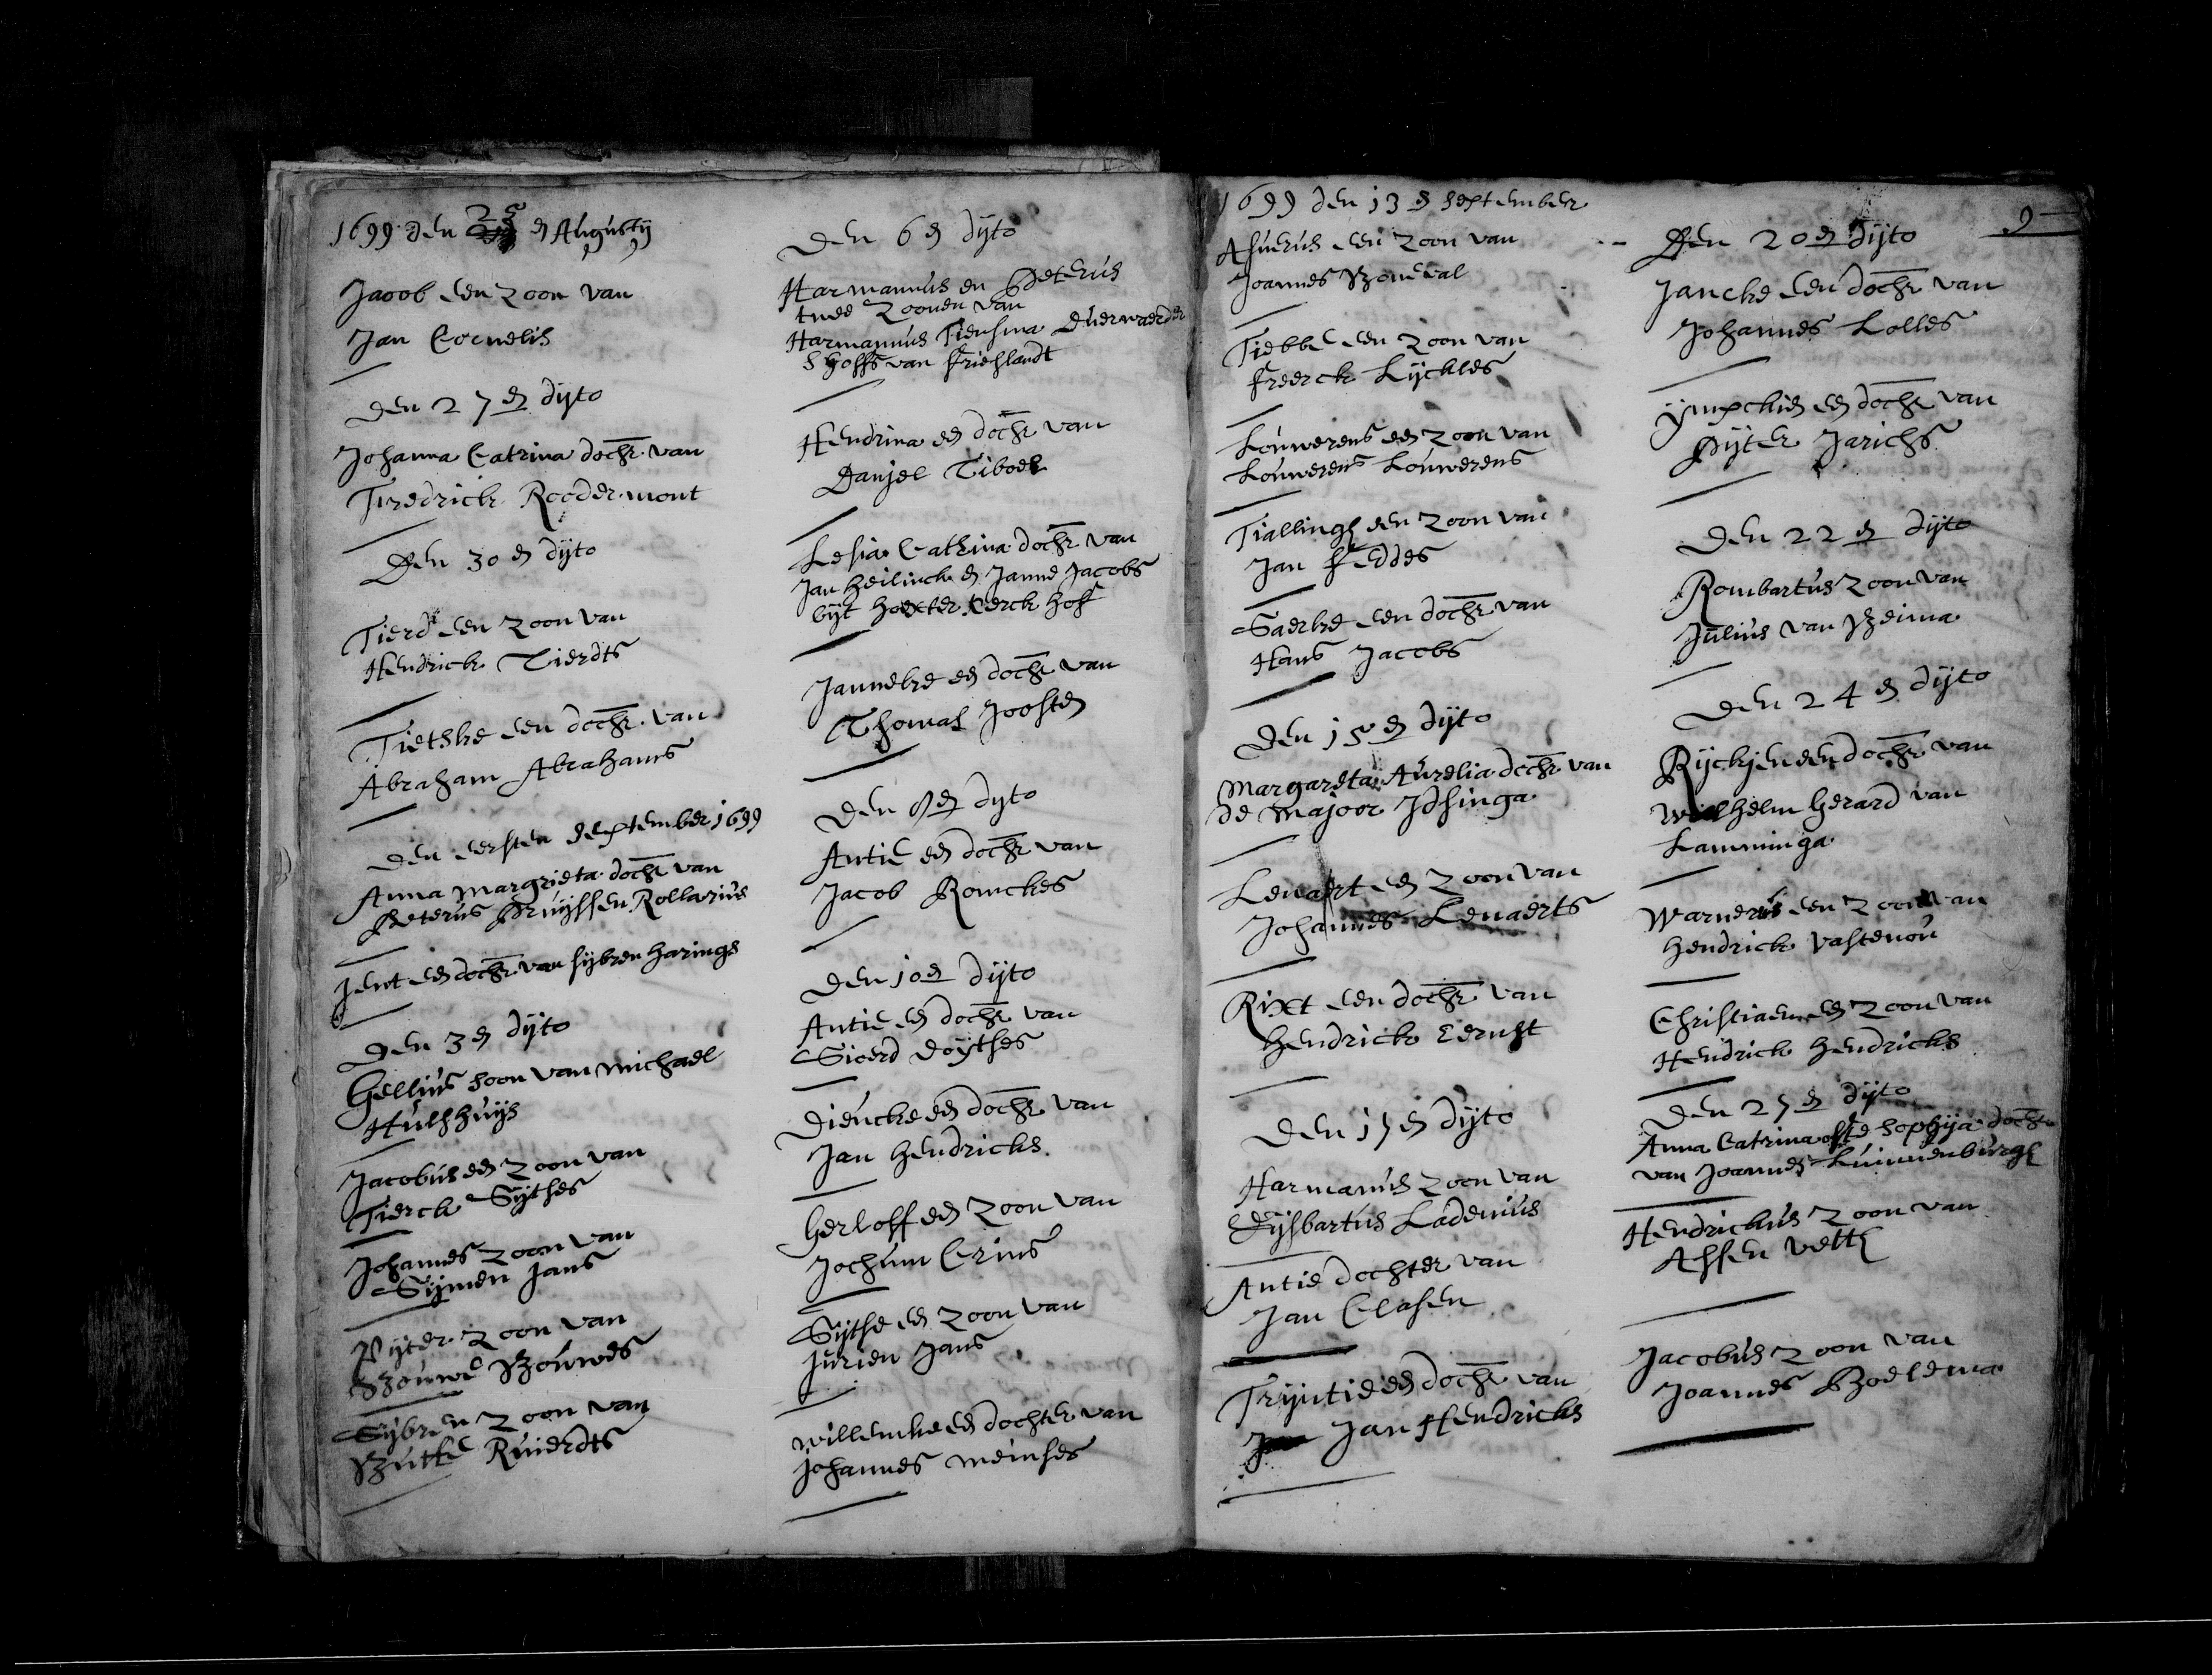 1699 den 25 en Augusty
Jacob een zoon van
Jan Cornelis
Den 27 en dyto
Johanna Catrina dochr van
Fredrick Roodermont
Den 30 en dyto
Tierd een zoon van
Hendrick Tierdts
Tietske een dochr van
Abraham Abrahams
Den eersten september 1699
Anna Margrieta dochr van
Peterus Rollarius
Jent een dochr van sybren harings
Den 3 en dyto
Gellius soon van michael
Hulshuys
Jacobus een zoon van
Tierck Sythes
Johannes zoon van
Symen Jans
Pyter zoon van
Bouwe Bouwes
Sybren zoon van
Butte Ruierdts
Den 6 en dyto
Harmannus en Peterus
twee zoonen van
Harmannus Tiensma Duerwaerder
s hoffs van Frieslandt
Hendrina een dochr van
Danjel Tiboel
Lesia Cathrina dochr van
Jan heilinck en Janne Jacobs
byt hoexter kerck hof
Janneke een dochr van
Thomas Joosten
Den 8 en dyto
Antie een dochr van
Jacob Romckes
Den 10 en dyto
Antie een dochr van
Sioerd doythes
Dieucke een dochr van
Jan hendricks
Gerloff een zoon van
Jochum Crins
Sythe een zoon van
Jurien Jans
willemke een dochter van
Johannes meinses
1699 den 13 en september
Asuerus een zoon van
Joannes Bomeval
Tiebbe een zoon van
Freerck Lyckles
Louwerens een zoon van
Louwerens Louwerens
Tialling een zoon van
Jan Feddes
Saerke een dochr van
Hans Jacobs
Den 15 en dyto
Margareta Aurelia dochr van
de Majoor Idsinga
Lenart een zoon van
Johannes Lenaerts
Rixt een dochr van
hendrick Eernst
Den 17 en dyto
Harmanus zoon van
Gysbartus Ladenius
Antie dochter van
Jan Clasen
Tryntie een dochr van
Jan Hendricks
9
Den 20 en dyto
Jancke een dochr van
Johannes Lolles
Ympckien een dochr van
Pyter Jarichs
Den 22 en dyto
Rombartus zoon van
Julius van Beima
Den 24 en dyto
Ryckjen een dochr van
Wilhelm Gerard van
Lamminga
Warnerus een zoon van
hendrick vastenou
Christiaen een zoon van
Hendrick hendricks
Den 27 en dyto
Anna Catrina ofte sophya dochr
van Joannes Luinenburg
Hendrickus zoon van
Assen vetth
Jacobus zoon van
Joannes Boelema